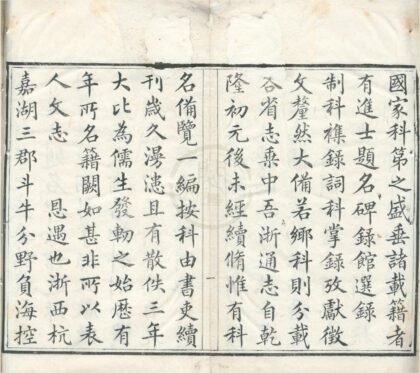 國家科第之盛垂諸載籍者
有進士題名碑錄館選錄
制科襍錄詞科掌錄攷獻徵
文釐然大備若鄉科則分載
各省志乘中吾浙通志自乾
隆初元後未經續脩惟有科
名備覽一編按科由書吏續
刊歲久漫漶且有散佚三年
大比為儒生發軔之始歷有
年所名籍闕如甚非所以表
人文志 恩遇也浙西杭
嘉湖三郡斗牛分野負海控
一